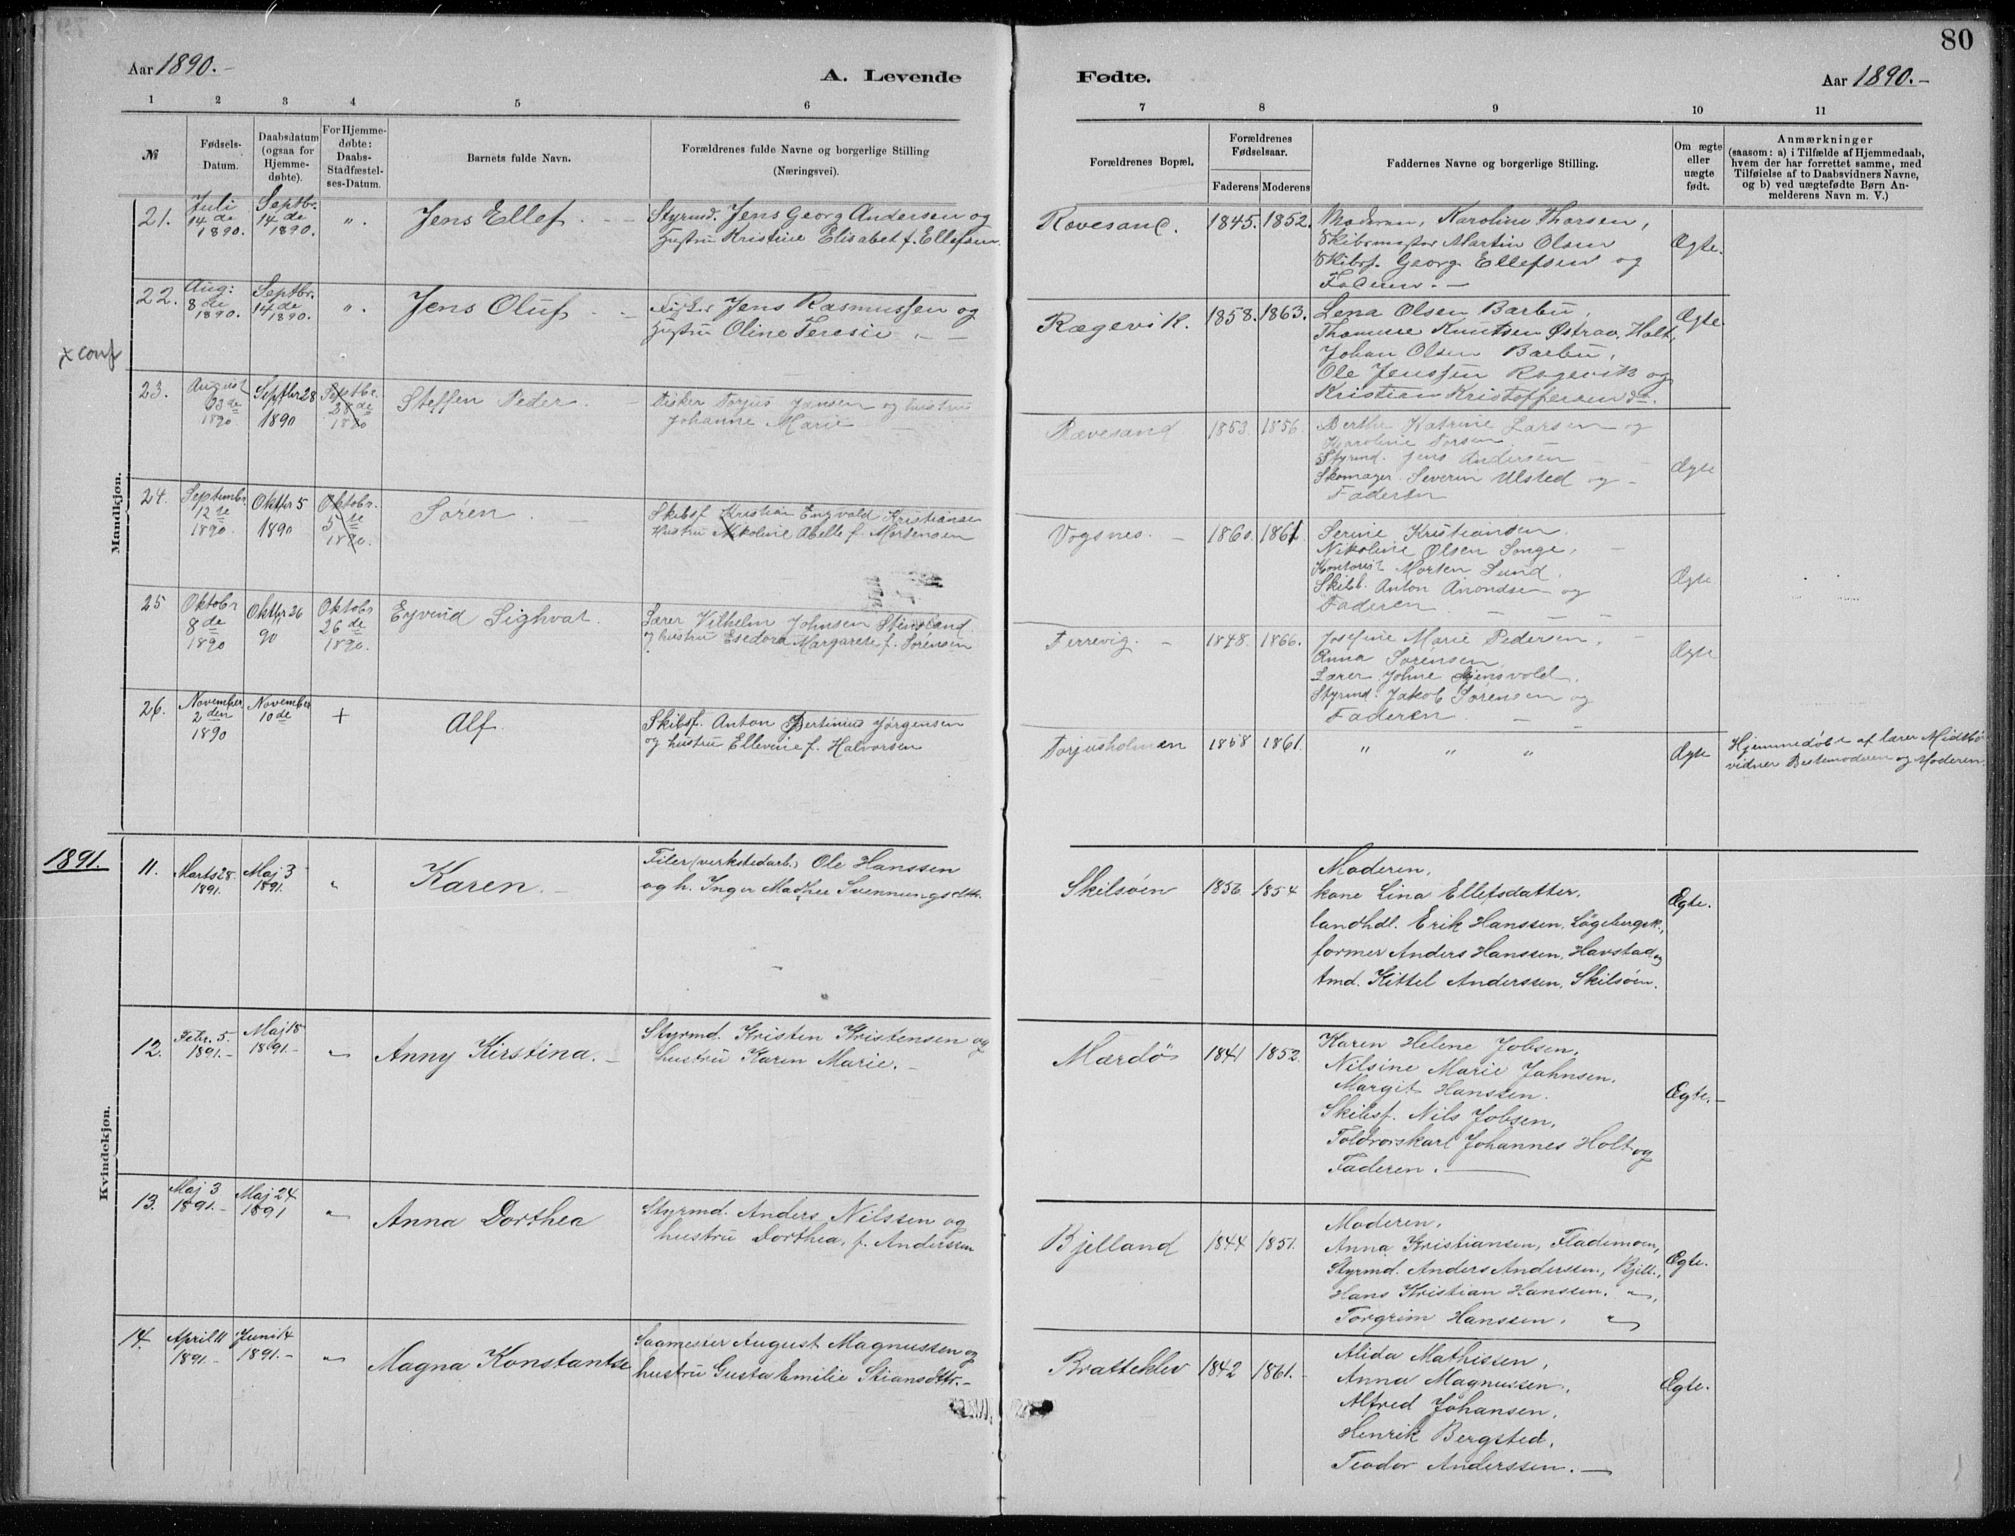 80
Aar 1890.-
A. Levende
Fødte.
Aar 1890.-
1 2 3 4 5 6 7 8 9 10 11
№
Fødsels-
Datum.
Daabsdatum
(ogsaa for
Hjemme-
døbte).
For Hjemme-
døbte:
Daabs-
Stadfæstel-
ses-Datum.
Barnets fulde Navn.
Forældrenes fulde Navne og borgerlige Stilling
(Næringsvei).
Forældrenes Bopæl.
Forældrenes
Fødselsaar.
Faderens Moderens
Faddernes Navne og borgerlige Stilling.
Om ægte
eller
uægte
født.
Anmærkninger
(saasom: a) i Tilfælde af Hjemmedaab,
hvem der har forrettet samme, med
Tilføielse af to Daabsvidners Navne,
og b) ved uægtefødte Børn An-
melderens Navn m. V.)
Mandkjøn.
21.
Juli
14 de
1890.
Septbr.
14 de
1890.
".
Jens Ellef
Styrmd. Jens Georg Andersen og
Hustru Kristine Elisabet f. Ellefsen
Rævesand.
1845. 1852.
Moderen, Karoline Thorsen,
Martin Olsen
Skibsf. Georg Ellefsen og
Faderen. -
Ægte.
22.
Aug:
8 de
1890.
Septbr.
14 de
1890.
".
Jens Oluf
Fisker Jens Rasmussen og
Hustru Oline Teresie
Rægevik.
1858. 1863.
Lena Olsen Barbu,
Knutsen Østraa, Holt,
Johan Olsen Barbu,
Ole Jenssen Rægevik og
Kristian Kristoffersen do.
Ægte.
x conf
23.
August
23 de
1890
Septbr 28
1890
Septbr.
28 de
1890
Steffen Peder
Fisker Torjus Jansen og hustru
Johanne Marie
Rævesand
1853. 1856.
Berthe Katrine Larsen og
Karoline Torsen
Styrmd. Jens Andersen
Skomager Severin Ulsted og
Faderen
Ægte
24.
Septembr.
12 te
1890.
Oktbr 5
1890
Oktobr.
5 te
1890.
Sören
Skibsf. Kristian Engvald Kristiansen
Hustru Nikoline Abelle f. Mortensen
Vogsnes.
1860. 1861.
Serine Kristiansen
Nikoline Olsen Songe,
Kontorist Morten Lund,
Skibb. Anton Anondsen og
Faderen
Ægte
25
Oktobr
8 de
1890
Oktbr 26
90
Oktobr
26 de
1890.
Eyvind Sighvat.
Lærer Vilhelm Johnsen Stensland
og hustru Esedora Margarete f. Sörensen
Færrevig.
1848. 1866.
Josefine Marie Pedersen,
Anna Sörensen,
Lærer Johne
Styrmd. Jakob Sörensen og
Faderen
Ægte
26.
November
2 den
1890
November
10 de
+
Alf
Skibsf. Anton Bertinius Jörgensen
og hustru Ellevine f. Halvorsen
Torjusholmen
1858 1861.
" " "
Ægte
Hjemmedöbt af lærer Midtbö
vidner Bestemoderen og Moderen.
1891.
Kvindekjøn.
11.
Marts 28.
1891.
Maj 3
1891.
"
Karen.
Filer (verkstedarb.) Ole Hanssen
og h. Inger Mathea Svennungsdttr.
Skilsöen
1856 1854
Moderen,
kone Lina Ellefsdatter,
landhdl. Erik Hanssen, Lögebergsk.,
former Anders Hanssen, Havstad og
tmd. Kittel Anderssen, Skilsöen.
Ægte.
12.
Febr. 5.
1891.-
Maj 18
1891.-
"
Anny Kirstina.
Styrmd. Kristen Kristensen og
hustru Karen Marie.
Mærdö
1841 1852.
Karen Helene Jobsen,
Nilsine Marie Jahnsen,
Margit Hanssen.
Skibsf. Nils Jobsen,
Toldrorskarl Johannes Holt og
Faderen.
Ægte.-
13.
Maj 3
1891.-
Maj 24
1891
"
Anna Dorthea
Styrmd. Anders Nilssen og
hustru Dorthea, f. Anderssen
Bjelland
1844 1851.
Moderen,
Anna Kristiansen, Flademoen,
Styrmd. Anders Anderssen, Bjell.,
Hans Kristian Hanssen. ",
Torgrim Hanssen, "
Ægte.
14.
April 11
1891.-
Juni 14
1891.-
"
Magna Konstantse
Sagmester August Magnussen og
hustru Gusta Emilie Stiansdttr.-
Bratteklev
1842 1861.-
Alida Mathissen,
Anna Magnussen,
Alfred Johansen,
Henrik Bergsted,
Teodor Anderssen.
Ægte.